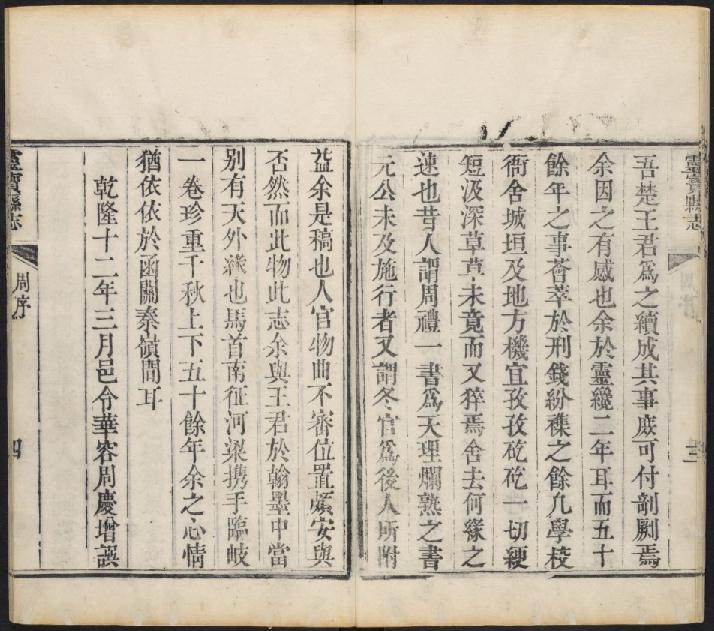 靈寶縣志
三
吾楚王君爲之續成其事庻可付剞劂焉
余因之有感也余於靈纔二年耳而五十
餘年之事薈萃於刑錢紛穫之餘凢學校
衙舍城垣及地方機宜孜孜矻矻一切綆
短汲深草草未竟而又猝焉舍去何緣之
速也昔人謂周禮一書爲天理爛熟之書
元公未及施行者又謂冬官爲後人所附
益余是稿也人官物曲不審位置頗安與
否然而此物此志余與王君於翰墨中當
别有天外緣也馬首南征河梁携手臨岐
一卷珍重千秋上下五十餘年余之心情
猶依依於函關秦嶺間耳
乾隆十二年三月邑令華容周慶增譔
靈寶縣志
周序
四